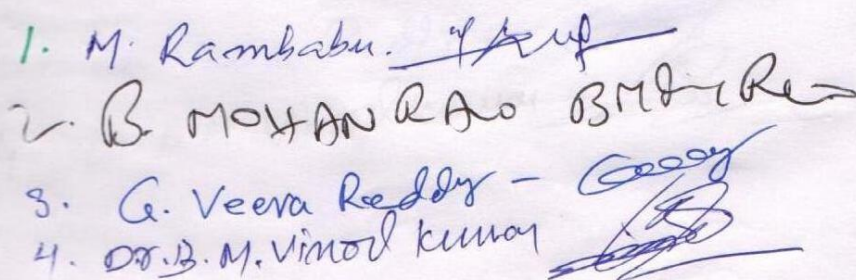 1. M. Rambabu.
2. B. MOHAN RAO
3. G. Veera Reddy -
4. Dr. B. M. Vinod Kumar